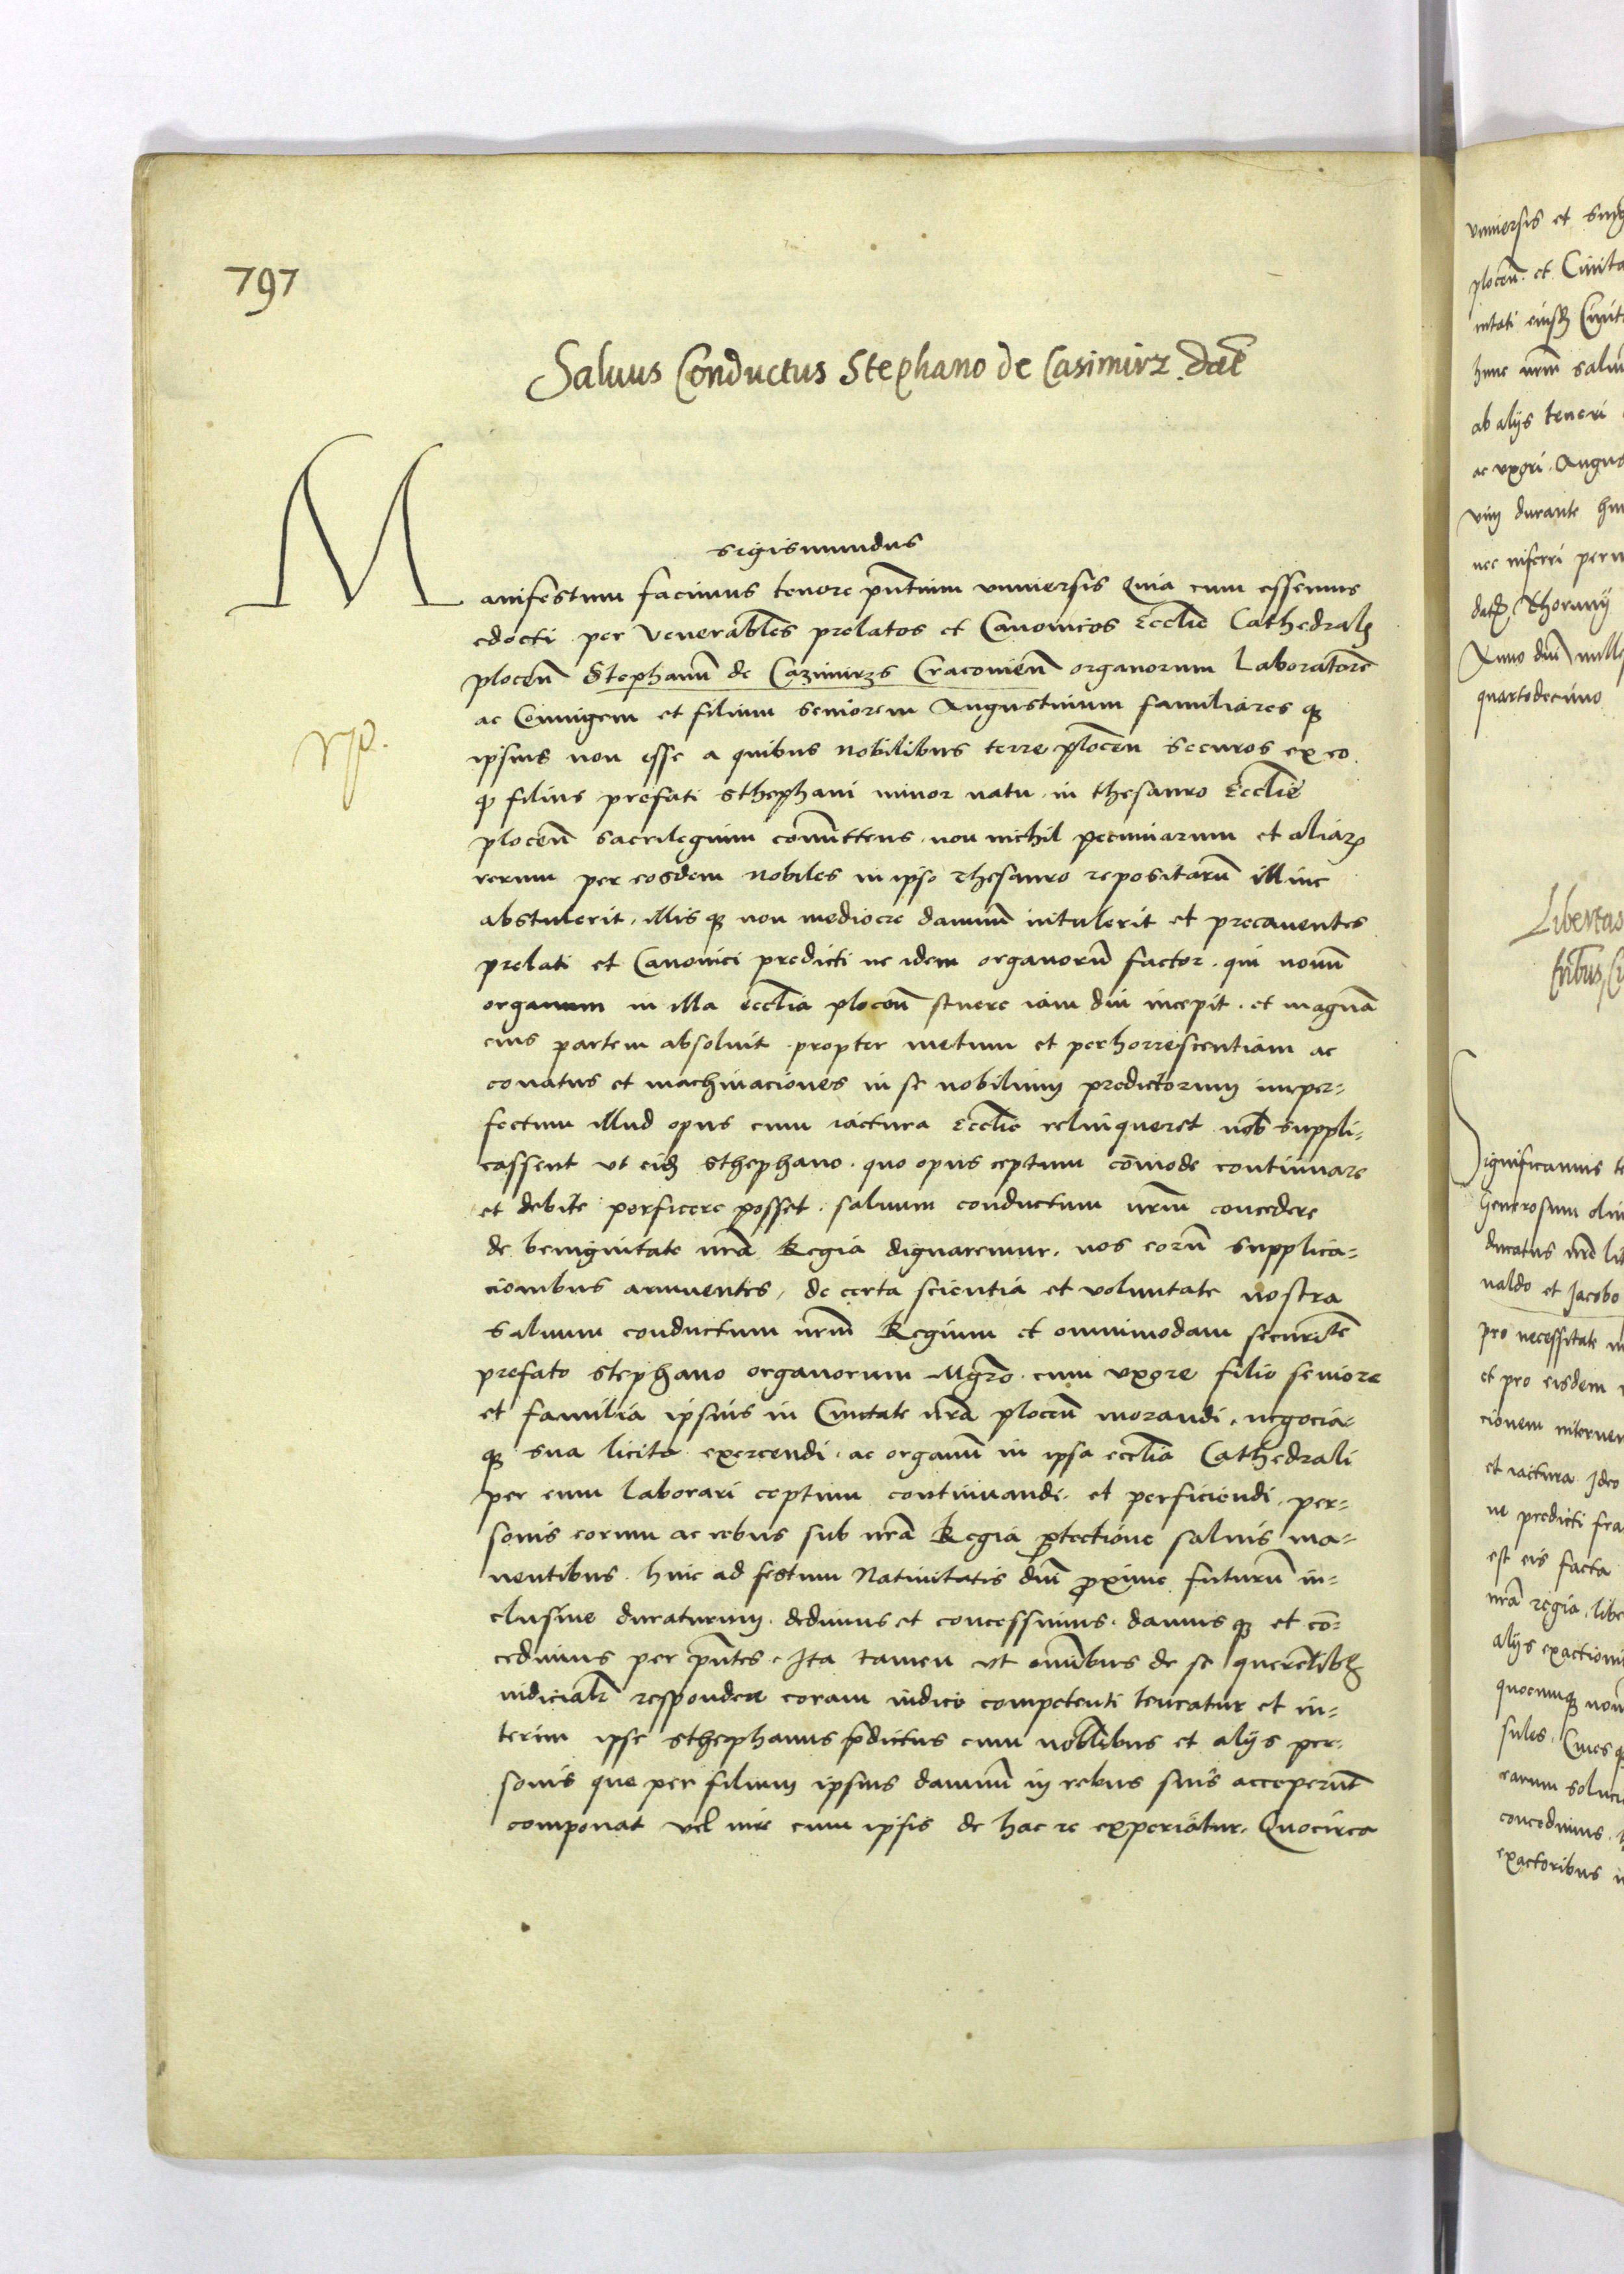 797
Saluus Conductus Stephano de Casimirz dat̃
Sigismundus
Manifestum facimus tenore pñtium vniuersis Quia cum essemus
edocti per Venerabiles prelatos et Canonicos Ecclie Cathedral
plocen̄ Stephanū de Cazimirzs Cracouien̄ organorum Laboratorē
ac Coniugem et filium seniorem Augustinum familiares qꝫ
ipsius non esse a quibus nobilibus terre plocen̄ securos ex eo
ꝙ filius prefati Sthephani minor natu in thesauro Ecclie
plocen̄ sacrilegium comittens non nichil pecuniarum et aliarꝫ
rerum per eosdem nobiles in ipso thesauro repositarū illinc
abstulerit, illis qꝫ non mediocre damnū intulerit et precauentes
prelati et Canonici predicti ne idem organorū factor qui nouū
organum in illa ecclia plocen̄ struere iam diu incepit et magnā
eius partem absoluit propter metum et perhorrescentiam ac
conatus et machinaciones in se nobilium predictorum imper-
fectum illud opus cum iactura Ecclie relinqueret nob̄ suppli-
cassent vt eidꝫ Sthephano quo opus ceptum cōmode continuare
et debite perficere posset saluum conductum nrm̄ concedere
de benignitate nrā Regia dignaremur, nos eorū supplica-
cionibus annuentes, de certa scientia et voluntate nostra
saluum conductum nrm̄ Regium et omnimodam securitē
prefato Stephano organorum Mgr̄o cum vxore filio seniore
et familia ipsius in Ciuitate nrā plocen̄ morandi, negocia-
qꝫ sua licita exercendi ac organū in ipsa ecclia Cathedrali
per eum laborari ceptum continuandi et perficiendi per-
sonis eorum ac rebus sub nrā Regia ꝓtectione saluis ma-
nentibus hinc ad festum Natiuitatis dnī ꝓxime futurū in-
clusiue duraturum dedimus et concessimus damus qꝫ et cō-
cedimus per pñtes Ita tamen vt omībus de se querelibꝫ
iudicialr̄ respondere coram iudice competenti teneatur et in-
terim ipse Sthephanus p̄dictus cum nobilibus et alijs per-
sonis que per filium ipsius damnū in rebus suis acceperūt
componat vel iure cum ipsis de hac re experiatur. Quocirca
vniuersis et sing
plocen̄ et Ciuita
hunc nrm̄ salu
ab alijs teneri
ac vxori Augus
vim durante
nec inferri perm
datꝫ Thoruny
Anno dnī mill
quartodecimo
Libertas
Significamus te
Generosum olim
ducatus nrē li
naldo et Jacobo
pro necessitate
et pro eisdem
cionem interuen
et iactura Ideo
ne predicti fra
est eis facta
nrā regia, libe
alijs exactioni
quocumqꝫ nom
sules, Ciues
earum soluci
concedimus
exactoribus